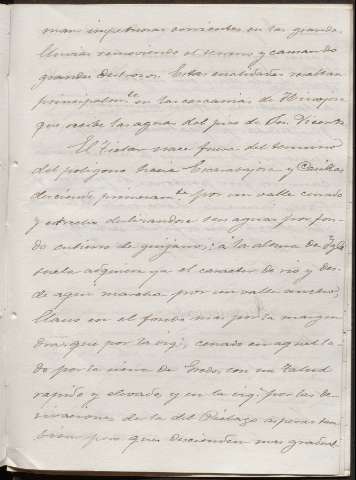 mas impetuosas corrientes en las grandes
lluvias removiendo el terreno y causando
grandes destrozos. Estas cualidades resaltan
principalmte en las cercanias de Hinojosa
que recibe las aguas del pico de Sn. Vicente
El Tietar nace fuera del termino
del poligono hacia Escarabajosa y Casillas
desciende primeramte por un valle cerrado
y estrecho deslizandose sus aguas por fon-
do cubierto de guijarros; á la altura de
adquiere ya el caracter de rio y des-
de aqui marcha por un valle ancho,
llano en el fondo mas por la margen
dra. que por la izq.; cerrado en aquel la-
do por la sierra de Gredos, con un talud
rapido y elevado, y en la izq. por las de-
rivaciones de la del Pielago asperas tam-
bien pero que descienden mas gradual